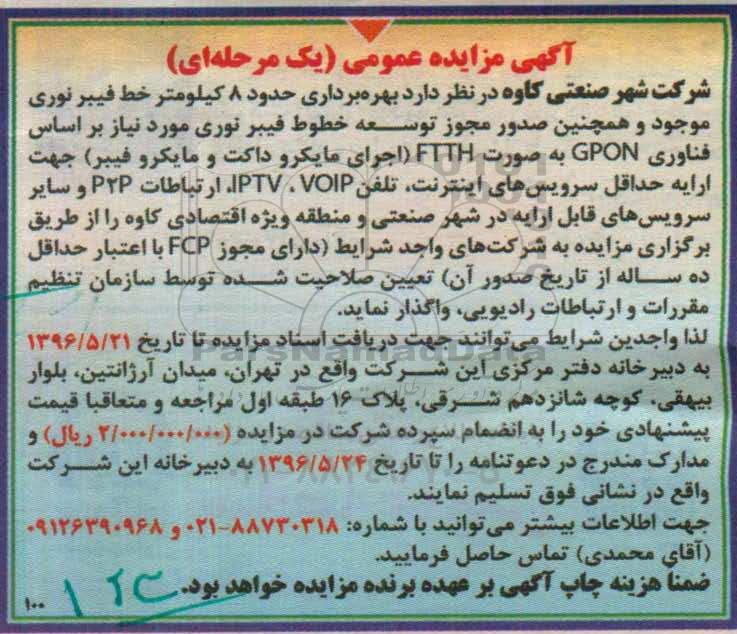 آگهی مزایده عمومی (یک مرحله‌ای)
شرکت شهر صنعتی کاوه در نظر دارد بهره‌برداری حدود ۸ کیلومتر خط فیبر نوری
موجود و همچنین صدور مجوز توسعه خطوط فیبر نوری مورد نیاز بر اساس
فناوری GPON به صورت FTTH (اجرای مایکرو داکت و مایکرو فیبر) جهت
ارایه حداقل سرویس‌های اینترنت، تلفن VOIP، IPTV، ارتباطات P۲P و سایر
سرویس‌های قابل ارایه در شهر صنعتی و منطقه ویژه اقتصادی کاوه را از طریق
برگزاری مزایده به شرکت‌های واجد شرایط (دارای مجوز FCP با اعتبار حداقل
ده ساله از تاریخ صدور آن) تعیین صلاحیت شده توسط سازمان تنظیم
مقررات و ارتباطات رادیویی، واگذار نماید.
لذا واجدین شرایط می‌توانند جهت دریافت اسناد مزایده تا تاریخ ۱۳۹۶/۵/۲۱
ParsNamadData
به دبیرخانه دفتر مرکزی این شرکت واقع در تهران، میدان آرژانتین، بلوار
بیهقی، کوچه شانزدهم شرقی، پلاک ۱۶ طبقه اول مراجعه و متعاقبا قیمت
پیشنهادی خود را به انضمام سپرده شرکت در مزایده (۲/۰۰۰/۰۰۰/۰۰۰ ریال) و
مدارک مندرج در دعوتنامه را تا تاریخ ۱۳۹۶/۵/۲۴ به دبیرخانه این شرکت
واقع در نشانی فوق تسلیم نمایند.
جهت اطلاعات بیشتر می‌توانید با شماره: ۸۸۷۳۰۳۱۸-۰۲۱ و ۰۹۱۲۶۳۹۰۹۶۸
(آقای محمدی) تماس حاصل فرمایید.
ضمنا هزینه چاپ آگهی بر عهده برنده مزایده خواهد بود.
۱۰۰